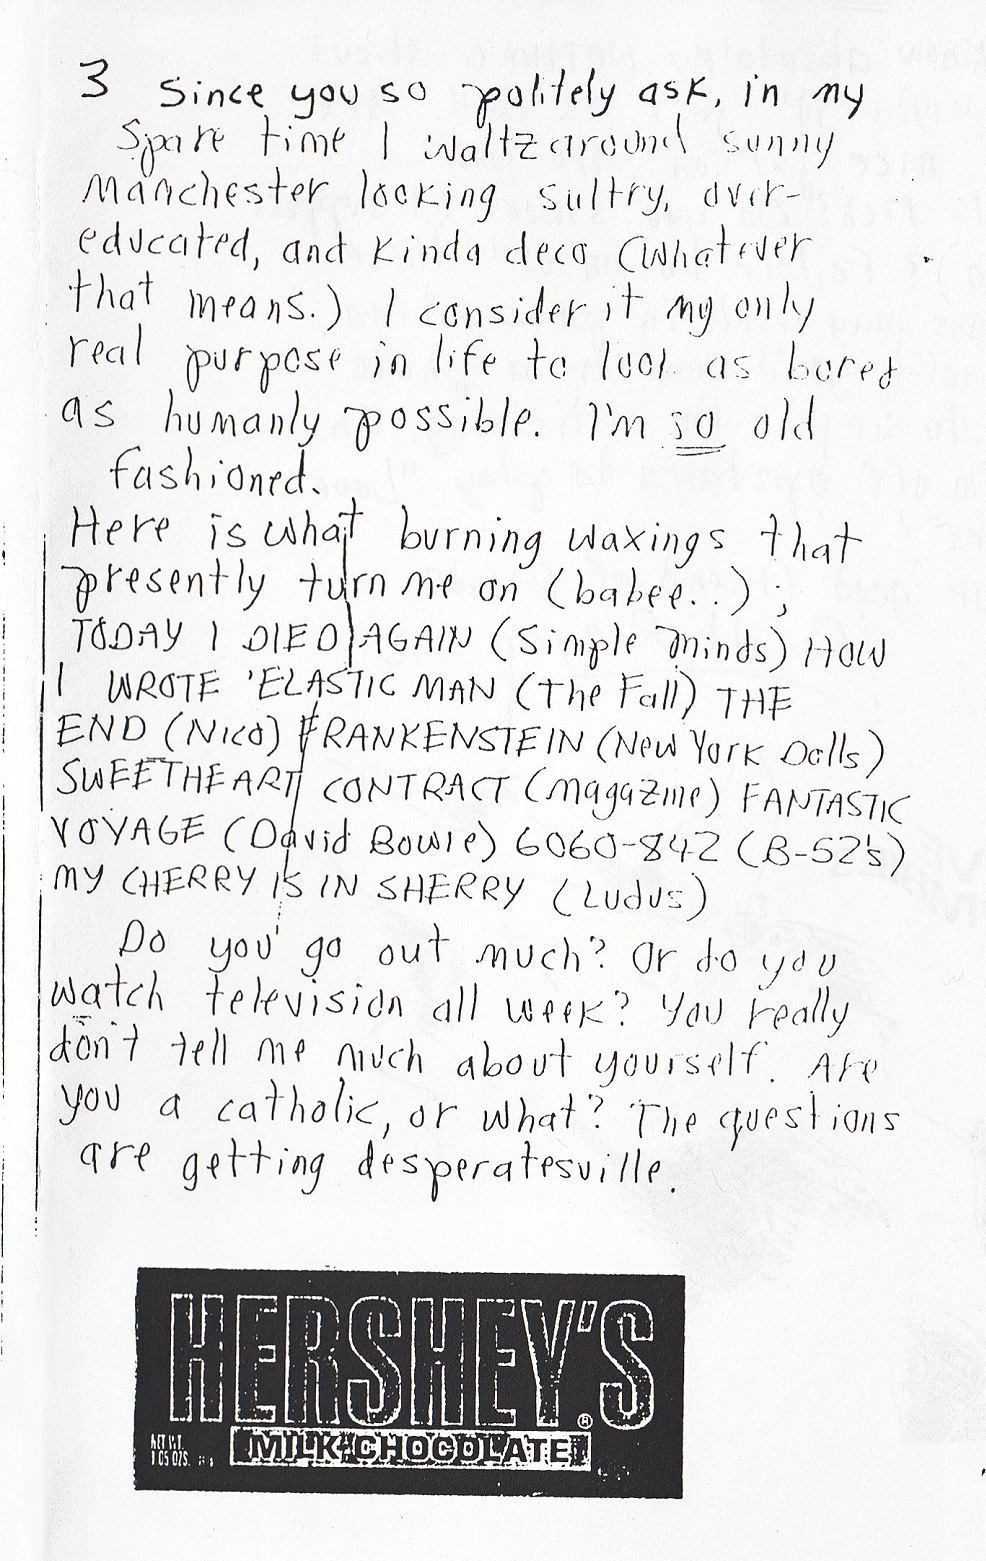 3 Since you so politely ask, in my
spare time I waltz around sunny
Manchester looking sultry, over-
educated, and kinda deco (whatever
that means.) I consider it my only
real purpose in life to look as bored
as humanly possible. I'm so old
fashioned.
Here is what burning waxings that
presently turn me on (babee..) ;
TODAY I DIED AGAIN (Simple Minds) HOW
I WROTE 'ELASTIC MAN (The Fall) THE
END (Nico) FRANKENSTEIN (New York Dolls)
SWEETHEART CONTRACT (Magazine) FANTASTIC
VOYAGE (David Bowie) 6060-842 (B-52's)
MY CHERRY IS IN SHERRY (Ludus)
Do you go out much? Or do you
watch television all week? You really
don't tell me much about yourself. Are
you a catholic, or what? The questions
are getting desperatesville.
HERSHEY'S®
MILK CHOCOLATE
NET WT.
1.05 OZS.